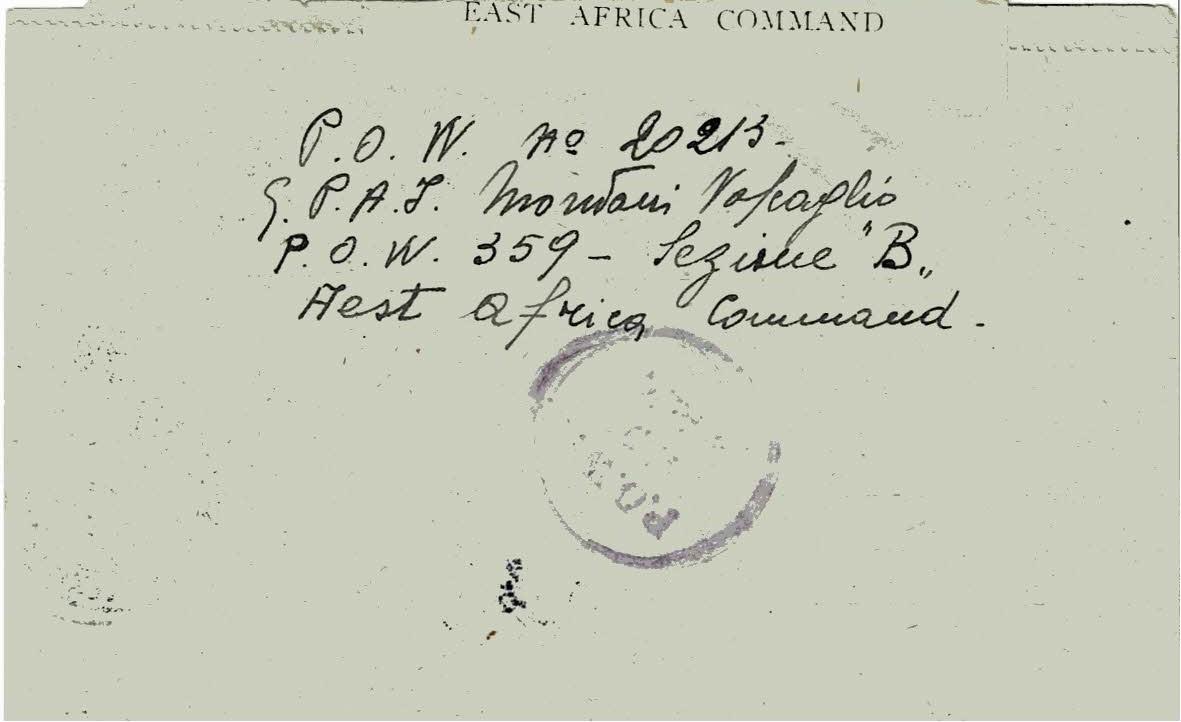 EAST AFRICA COMMAND
P.O.W. No 20213.
G.P.A.I. Mondani
P.O.W. 359 - Sezione "B„
Aest Africa Command.
P.O.W